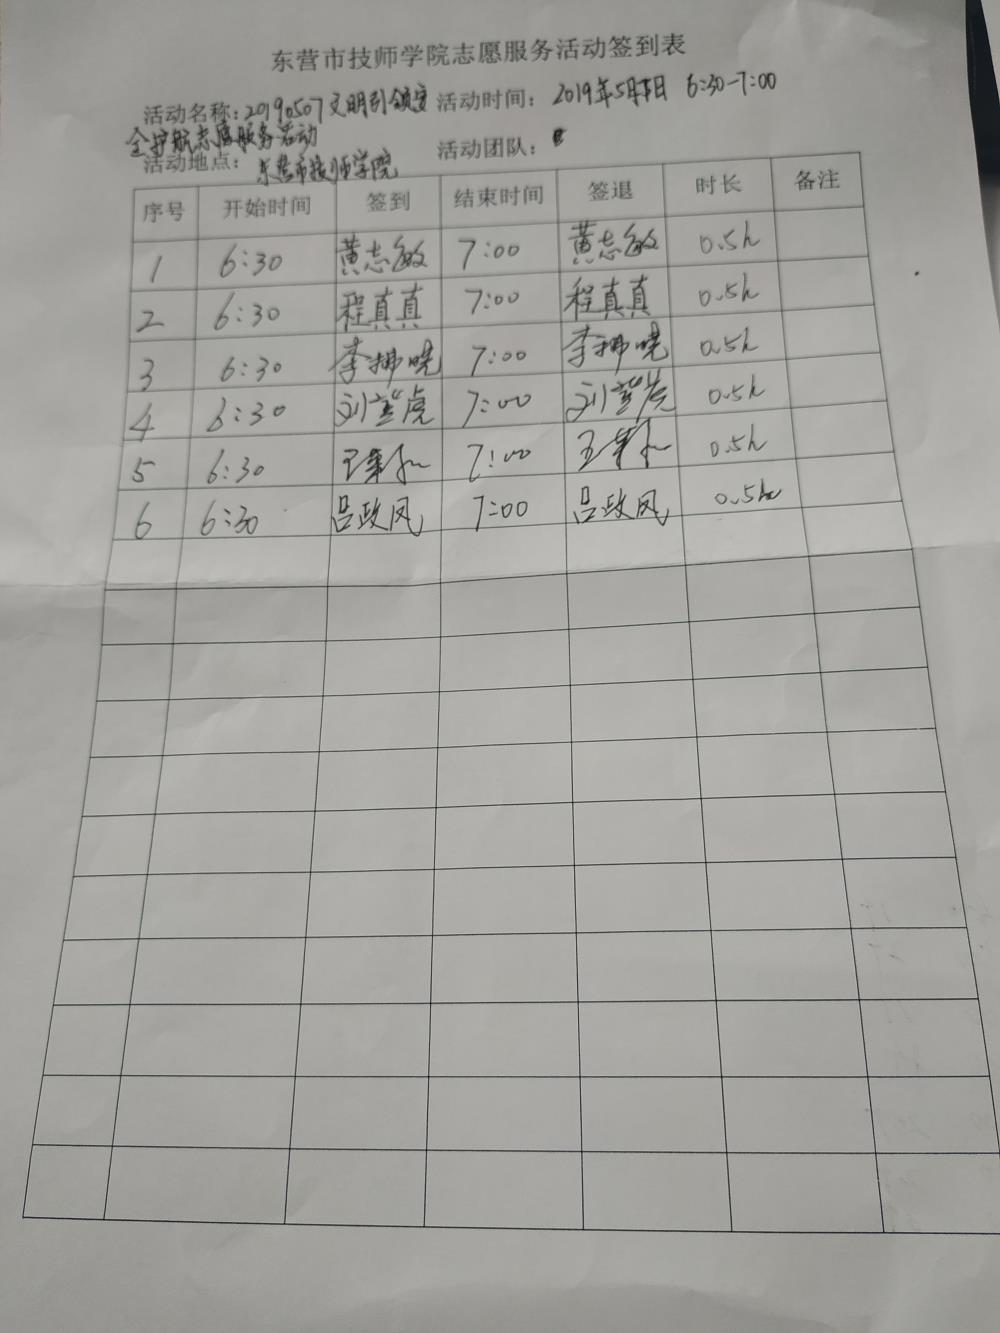 东营市技师学院志愿服务活动签到表
活动名称：20190507文明引领安 活动时间：2019年5月 日 6:30-7:00
全护航志愿服务活动
活动地点：东营市技师学院 活动团队：
序号 开始时间 签到 结束时间 签退 时长 备注
1 6:30 黄志敏 7:00 黄志敏 0.5h
2 6:30 程真真 7:00 程真真 0.5h
3 6:30 李 晓 7:00 李 晓 0.5h
4 6:30 刘 虎 7:00 刘 虎 0.5h
5 6:30 王 7:00 王 0.5h
6 6:30 吕政凤 7:00 吕政凤 0.5h